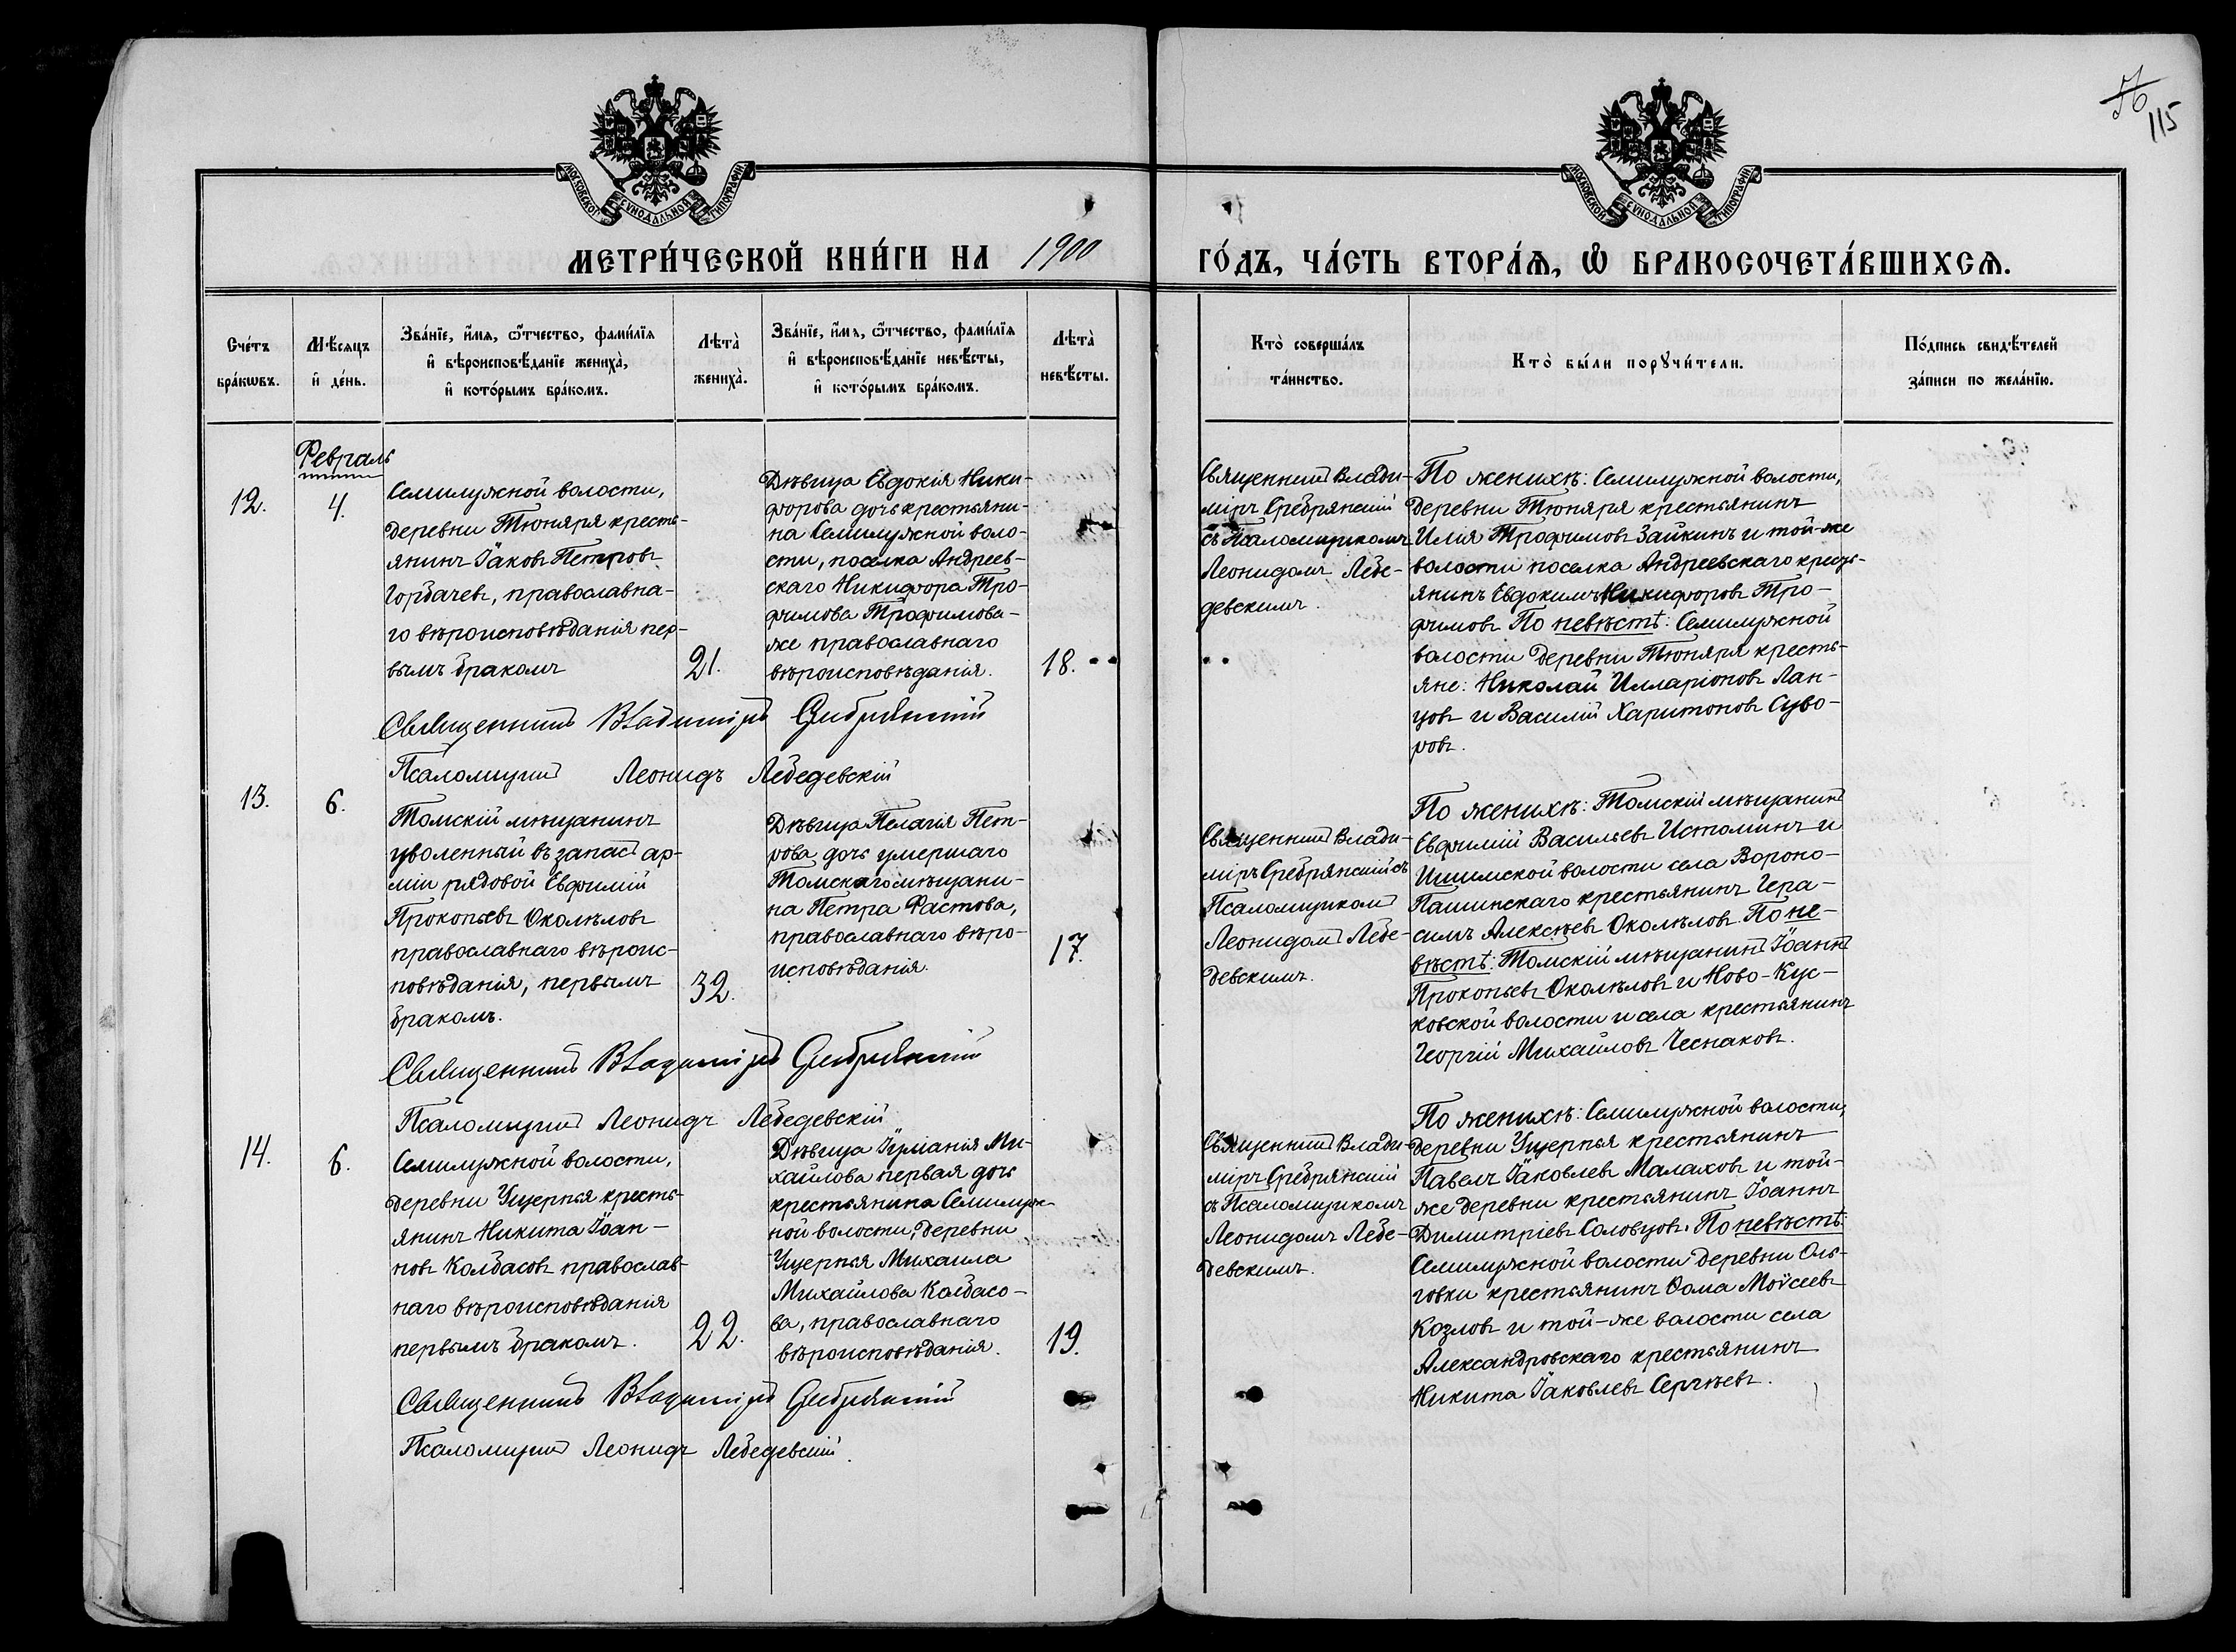 56
115
МОСКОВСКОЙ СѴНОДАЛЬНОЙ ТИПОГРАФІИ
МОСКОВСКОЙ СѴНОДАЛЬНОЙ ТИПОГРАФІИ
МЕТРИ́ЧЕСКОЙ КНИ́ГИ НА 1900
ГО́ДЪ, ЧА́СТЬ ВТОРА́Ѧ, Ѿ БРАКОСОЧЕТА́ВШИХСѦ.
Сче́тъ
бра́кѡвъ.
Мѣ́сяцъ
и҆ де́нь.
Зва́нїе, и҆́мѧ, ѻ҆́тчество, фами́лїѧ
и҆ вѣроисповѣ́данїе жениха̀,
и҆ кото́рымъ бра́комъ.
Лѣта̀
жениха̀.
Зва́нїе, и҆́мѧ, ѻ҆́тчество, фами́лїѧ
и҆ вѣроисповѣ́данїе невѣ́сты,
и҆ кото́рымъ бра́комъ.
Лѣта̀
невѣ́сты.
Кто̀ соверша́лъ
та́инство.
Кто̀ бы́ли порꙋчи́тели.
По́дпись свидѣ́телей
за́писи по жела́нїю.
Февраль
12.
4.
Семилужной волости,
деревни Тюняря кресть-
янинъ Іаковъ Петровъ
Горбачевъ, православна-
го вѣроисповѣданія пер-
вымъ бракомъ
21.
Дѣвица Евдокія Ники-
форова дочь крестьяни-
на Семилужной воло-
сти, поселка Андреев-
скаго Никифора Тро-
фимова Трофимова-
же православнаго
вѣроисповѣданія.
18.
Священникъ Влади-
міръ Сребрянскій
съ Псаломщикомъ
Леонидомъ Лебе-
девскимъ.
По женихѣ: Семилужной волости,
деревни Тюняря крестьянинъ
Илія Трофимовъ Зайкинъ и той-же
волости поселка Андреевскаго кресть-
янинъ Евдокимъ Никифоровъ Тро-
фимовъ По невѣстѣ: Семилужной
волости деревни Тюняря кресть-
яне: Николай Илларіоновъ Лан-
цовъ и Василій Харитоновъ Суво-
ровъ.
Священникъ Владиміръ Сребрянскій
Псаломщикъ Леонидъ Лебедевскій
13.
6.
Томскій мѣщанинъ
уволенный въ запасъ ар-
міи рядовой Евфимій
Прокопьевъ Околѣловъ
православнаго вѣроис-
повѣданія, первымъ
бракомъ.
32.
Дѣвица Пелагія Пет-
рова дочь умершаго
Томскаго мѣщани-
на Петра Фастова,
православнаго вѣро-
исповѣданія.
17.
Священникъ Влади-
міръ Сребрянскій съ
Псаломщикомъ
Леонидомъ Лебе-
девскимъ.
По женихѣ: Томскій мѣщанинъ
Евфимій Васильевъ Истоминъ и
Ишимской волости села Вороно-
Пашинскаго крестьянинъ Гера-
симъ Алексѣевъ Околѣловъ. По не-
вѣстѣ: Томскій мѣщанинъ Іоаннъ
Прокопьевъ Околѣловъ и Ново-Кус-
ковской волости и села крестьянинъ
Георгій Михайловъ Чеснаковъ.
Священникъ Владиміръ Сребрянскій
Псаломщикъ Леонидъ Лебедевскій
14.
6.
Семилужной волости,
деревни Ущерпья кресть-
янинъ Никита Іоан-
новъ Колбасовъ православ-
наго вѣроисповѣданія
первымъ бракомъ.
22.
Дѣвица Іуліанія Ми-
хайлова первая дочь
крестьянина Семилуж-
ной волости, деревни
Ущерпья Михаила
Михайлова Колбасо-
ва, православнаго
вѣроисповѣданія.
19.
Священникъ Влади-
міръ Сребрянскій
съ Псаломщикомъ
Леонидомъ Лебе-
девскимъ.
По женихѣ: Семилужной волости,
деревни Ущерпья крестьянинъ
Павелъ Іаковлевъ Малаховъ и той-
же деревни крестьянинъ Іоаннъ
Димитріевъ Соловцовъ. По невѣстѣ:
Семилужной волости деревни Оль-
говки крестьянинъ Ѳома Моѵсеевъ
Козловъ и той-же волости села
Александровскаго крестьянинъ
Никита Іаковлевъ Сергѣевъ.
Священникъ Владиміръ Сребрянскій
Псаломщикъ Леонидъ Лебедевскій.